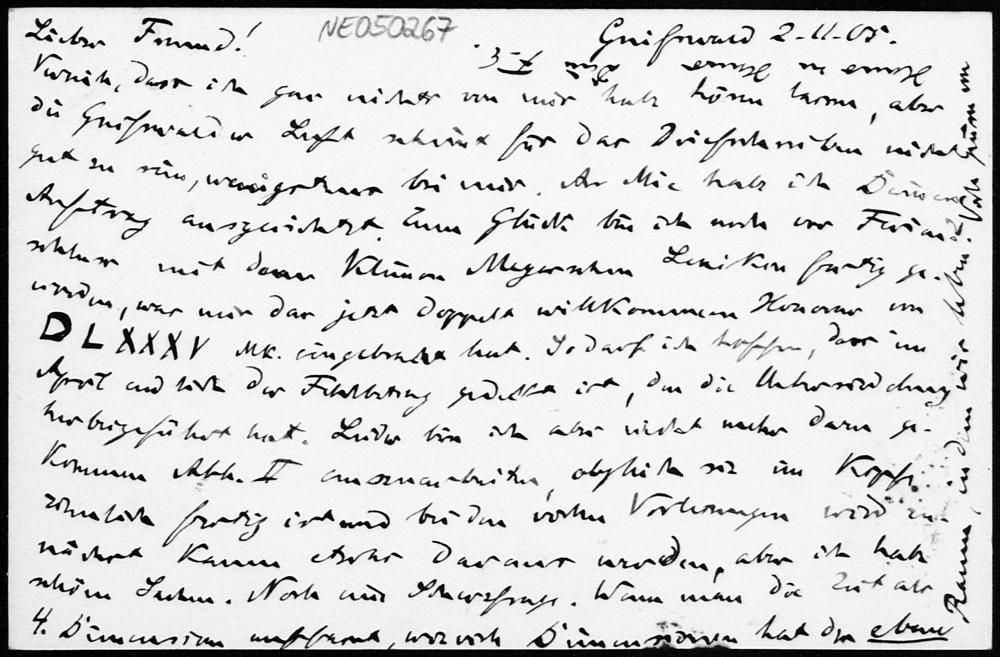 NE050267
Lieber Freund!
Greifswald 2-11-05.
Verzeih, dass ich gar nichts von mir habe hören lassen, aber
die Greifswalder Luft scheint für das Briefschreiben nicht
gut zu sein, wenigstens bei mir. An Mie habe ich Deinen
Auftrag ausgerichtet. Zum Glück bin ich noch vor Ferien-
schluss mit dem Kleinen Meyerschen Lexikon fertig ge-
worden, was mir das jetzt doppelt willkommene Honorar von
DLXXXV Mk. eingebracht hat. So darf ich hoffen, dass im
April endlich der Fehlbetrag gedeckt ist, den die
herbeigeführt hat. Leider bin ich aber nicht mehr dazu ge-
kommen Abh. II auszuarbeiten, obgleich sie im Kopfe
ziemlich fertig ist und bei den vielen Vorlesungen wird zu-
nächst kaum etwas daraus werden, aber ich habe
schöne Sachen. Noch eine Scherzfrage. Wenn man die Zeit als
4. Dimension auffasst, wieviele Dimensionen hat der ebene
Raum, in dem wir leben? Viele Grüsse von